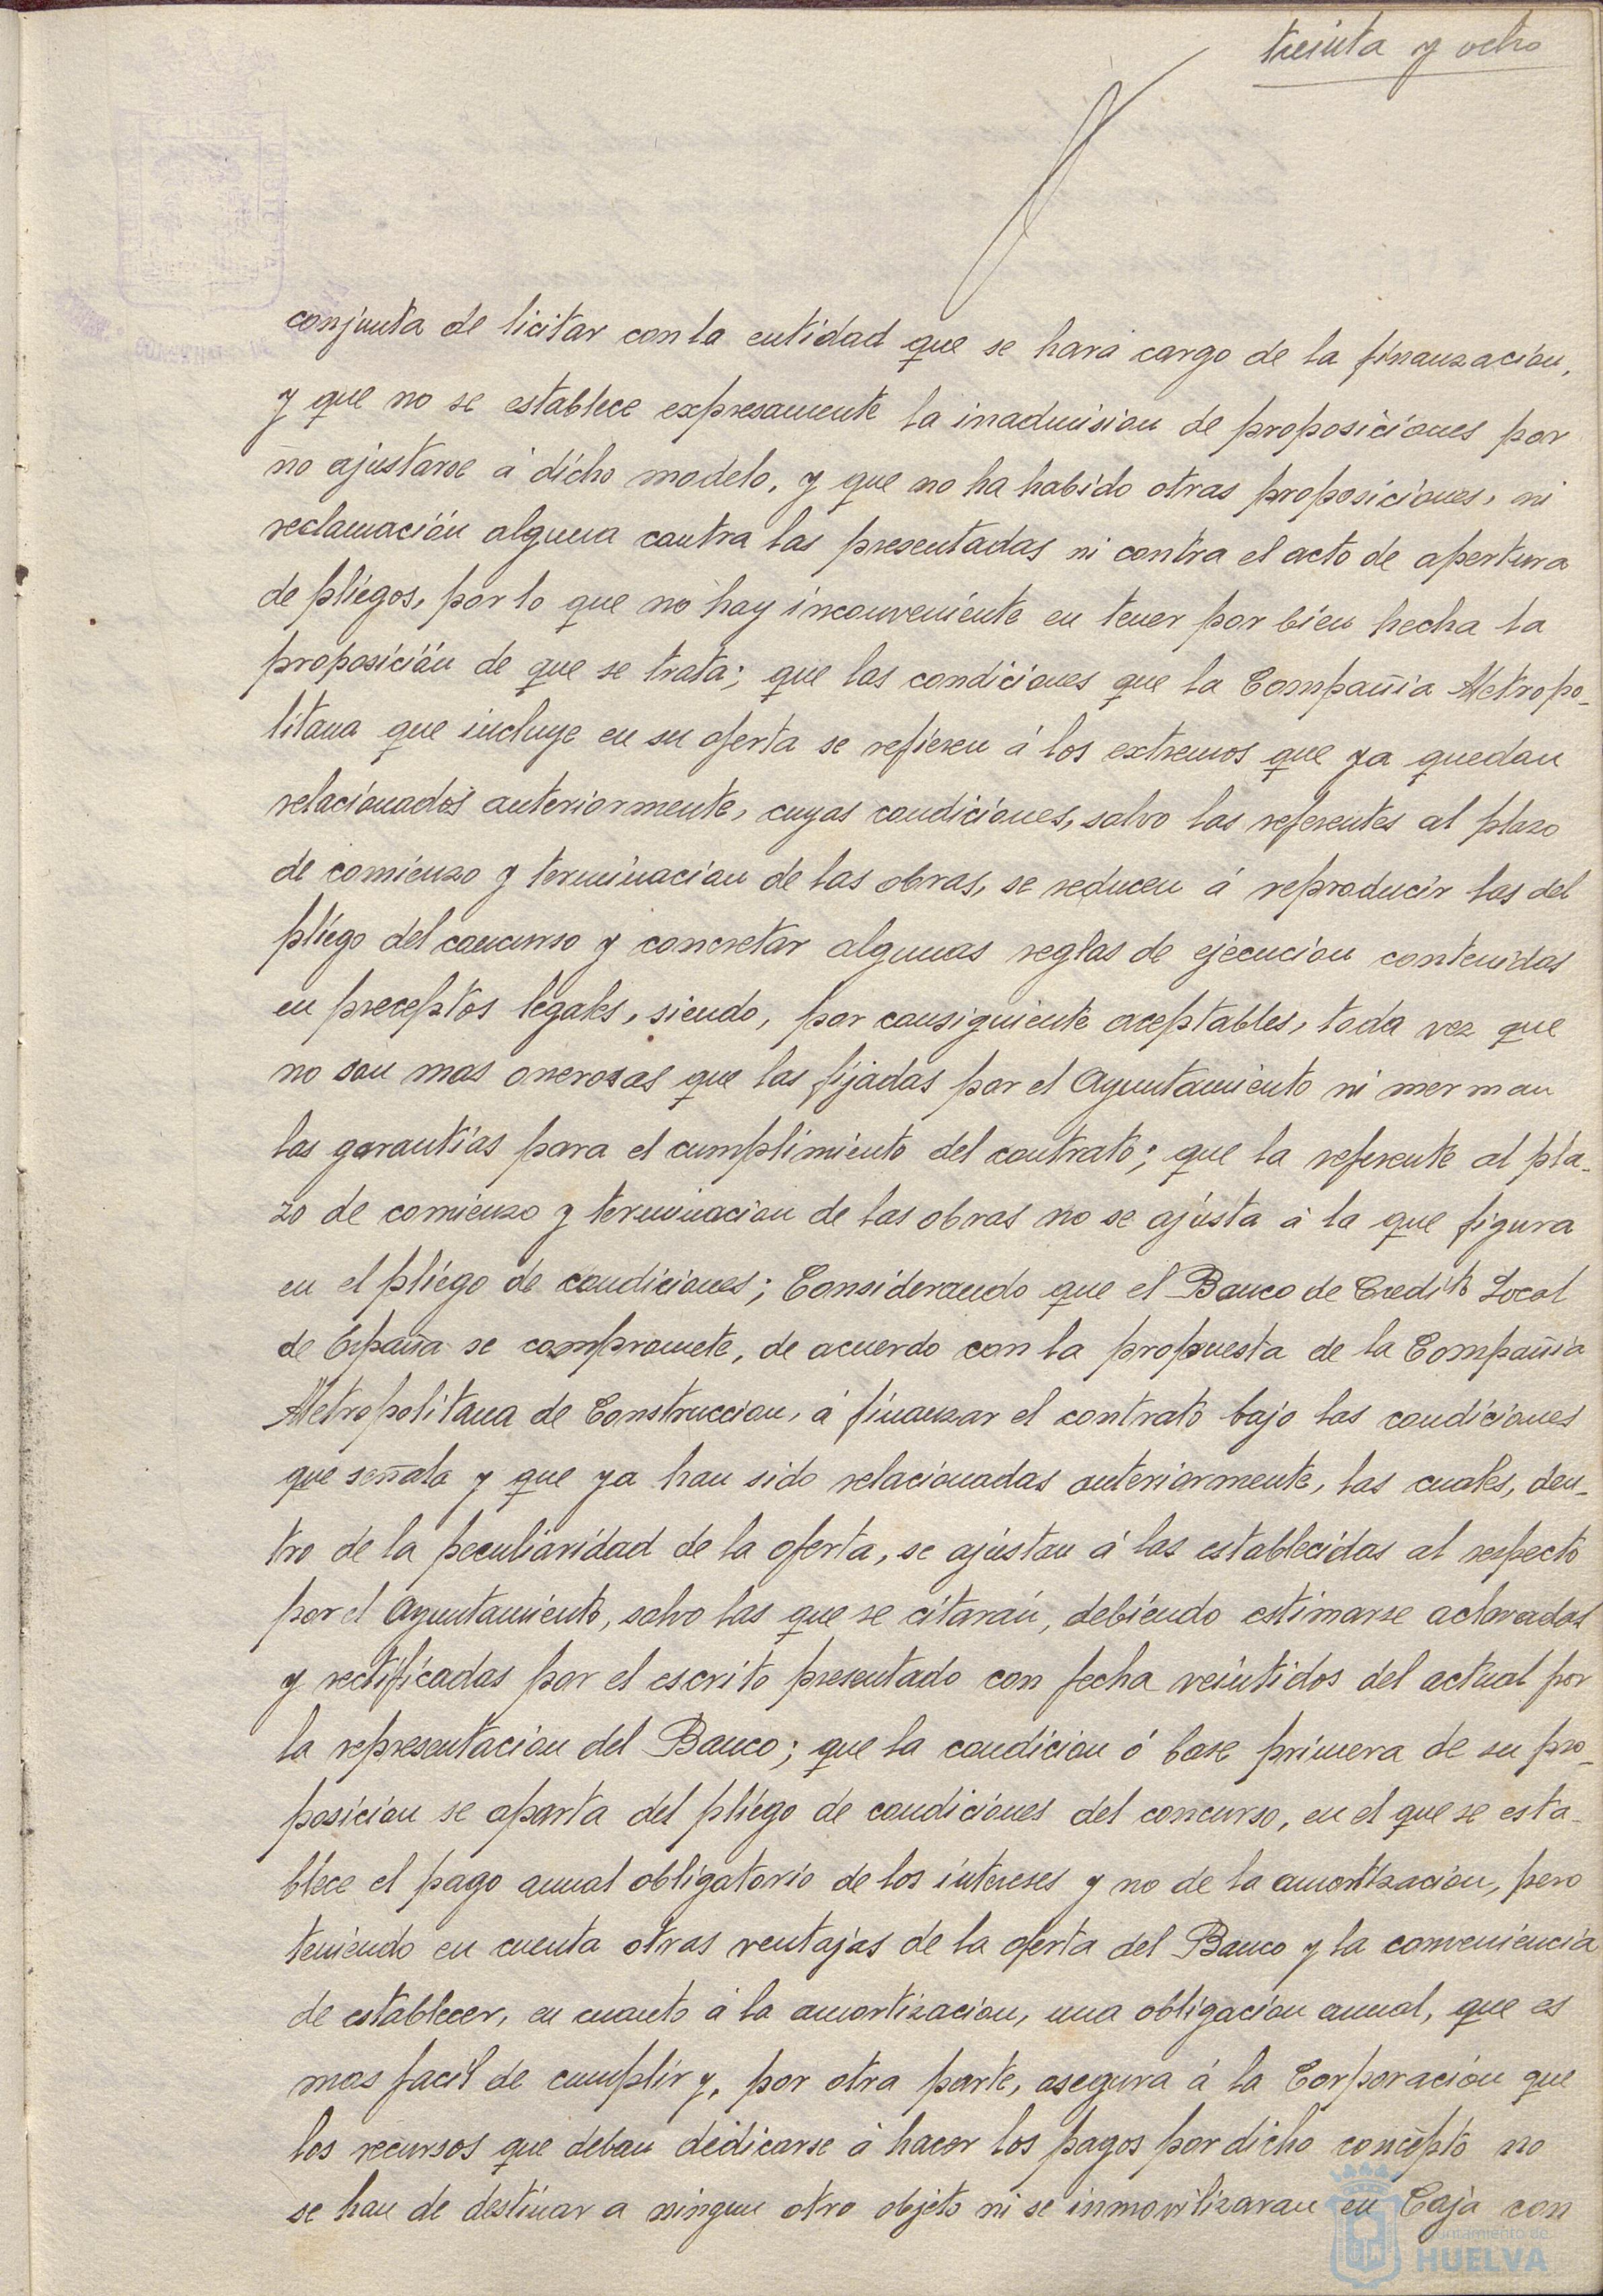 treinta y ocho
conjunta de licitar con la entidad que se hará cargo de la finanzacion,
y que no se establece expresamente la inadmision de proposiciones por
no ajustarse á dicho modelo, y que no ha habido otras proposiciones, ni
reclamación alguna contra las presentadas ni contra el acto de apertura
de pliégos, por lo que no hay inconveniente en tener por bien hecha la
proposición de que se trata; que las condiciones que la Compañia Metropo-
litana que incluye en su oferta se refieren á los extremos que ya quedan
relacionados anteriormente, cuyas condiciones, salvo las referentes al plazo
de comienzo y terminacion de las obras, se reducen á reproducir las del
pliégo del concurso y concretar algunas reglas de ejecucion contenidas
en preceptos legales, siendo, por consiguiente aceptables, toda vez que
no son mas onerosas que las fijadas por el Ayuntamiento ni merman
las garantias para el cumplimiento del contrato; que la referente al pla-
zo de comienzo y terminacion de las obras no se ajusta á la que figura
en el pliégo de condiciones; Considerando que el Banco de Credito Local
de España se compromete, de acuerdo con la propuesta de la Compañia
Metropolitana de Construccion, á finanzar el contrato bajo las condiciones
que señala y que ya han sido relacionadas anteriormente, las cuales, den-
tro de la peculiaridad de la oferta, se ajustan á las establecidas al respecto
por el Ayuntamiento, salvo las que se citarán, debiendo estimarse aclaradas
y rectificadas por el escrito presentado con fecha veintidos del actual por
la representacion del Banco; que la condicion ó base primera de su pro-
posicion se aparta del pliégo de condiciones del concurso, en el que se esta-
blece el pago anual obligatorio de los intereses y no de la amortizacion, pero
teniendo en cuenta otras ventajas de la oferta del Banco y la conveniencia
de establecer, en cuanto á la amortizacion, una obligacion anual, que es
mas facil de cumplir y, por otra parte, asegura á la Corporación que
los recursos que deban dedicarse á hacer los pagos por dicho concepto no
se han de destinar a ningun otro objeto ni se inmovilizaran en Caja con
Ayuntamiento de
HUELVA